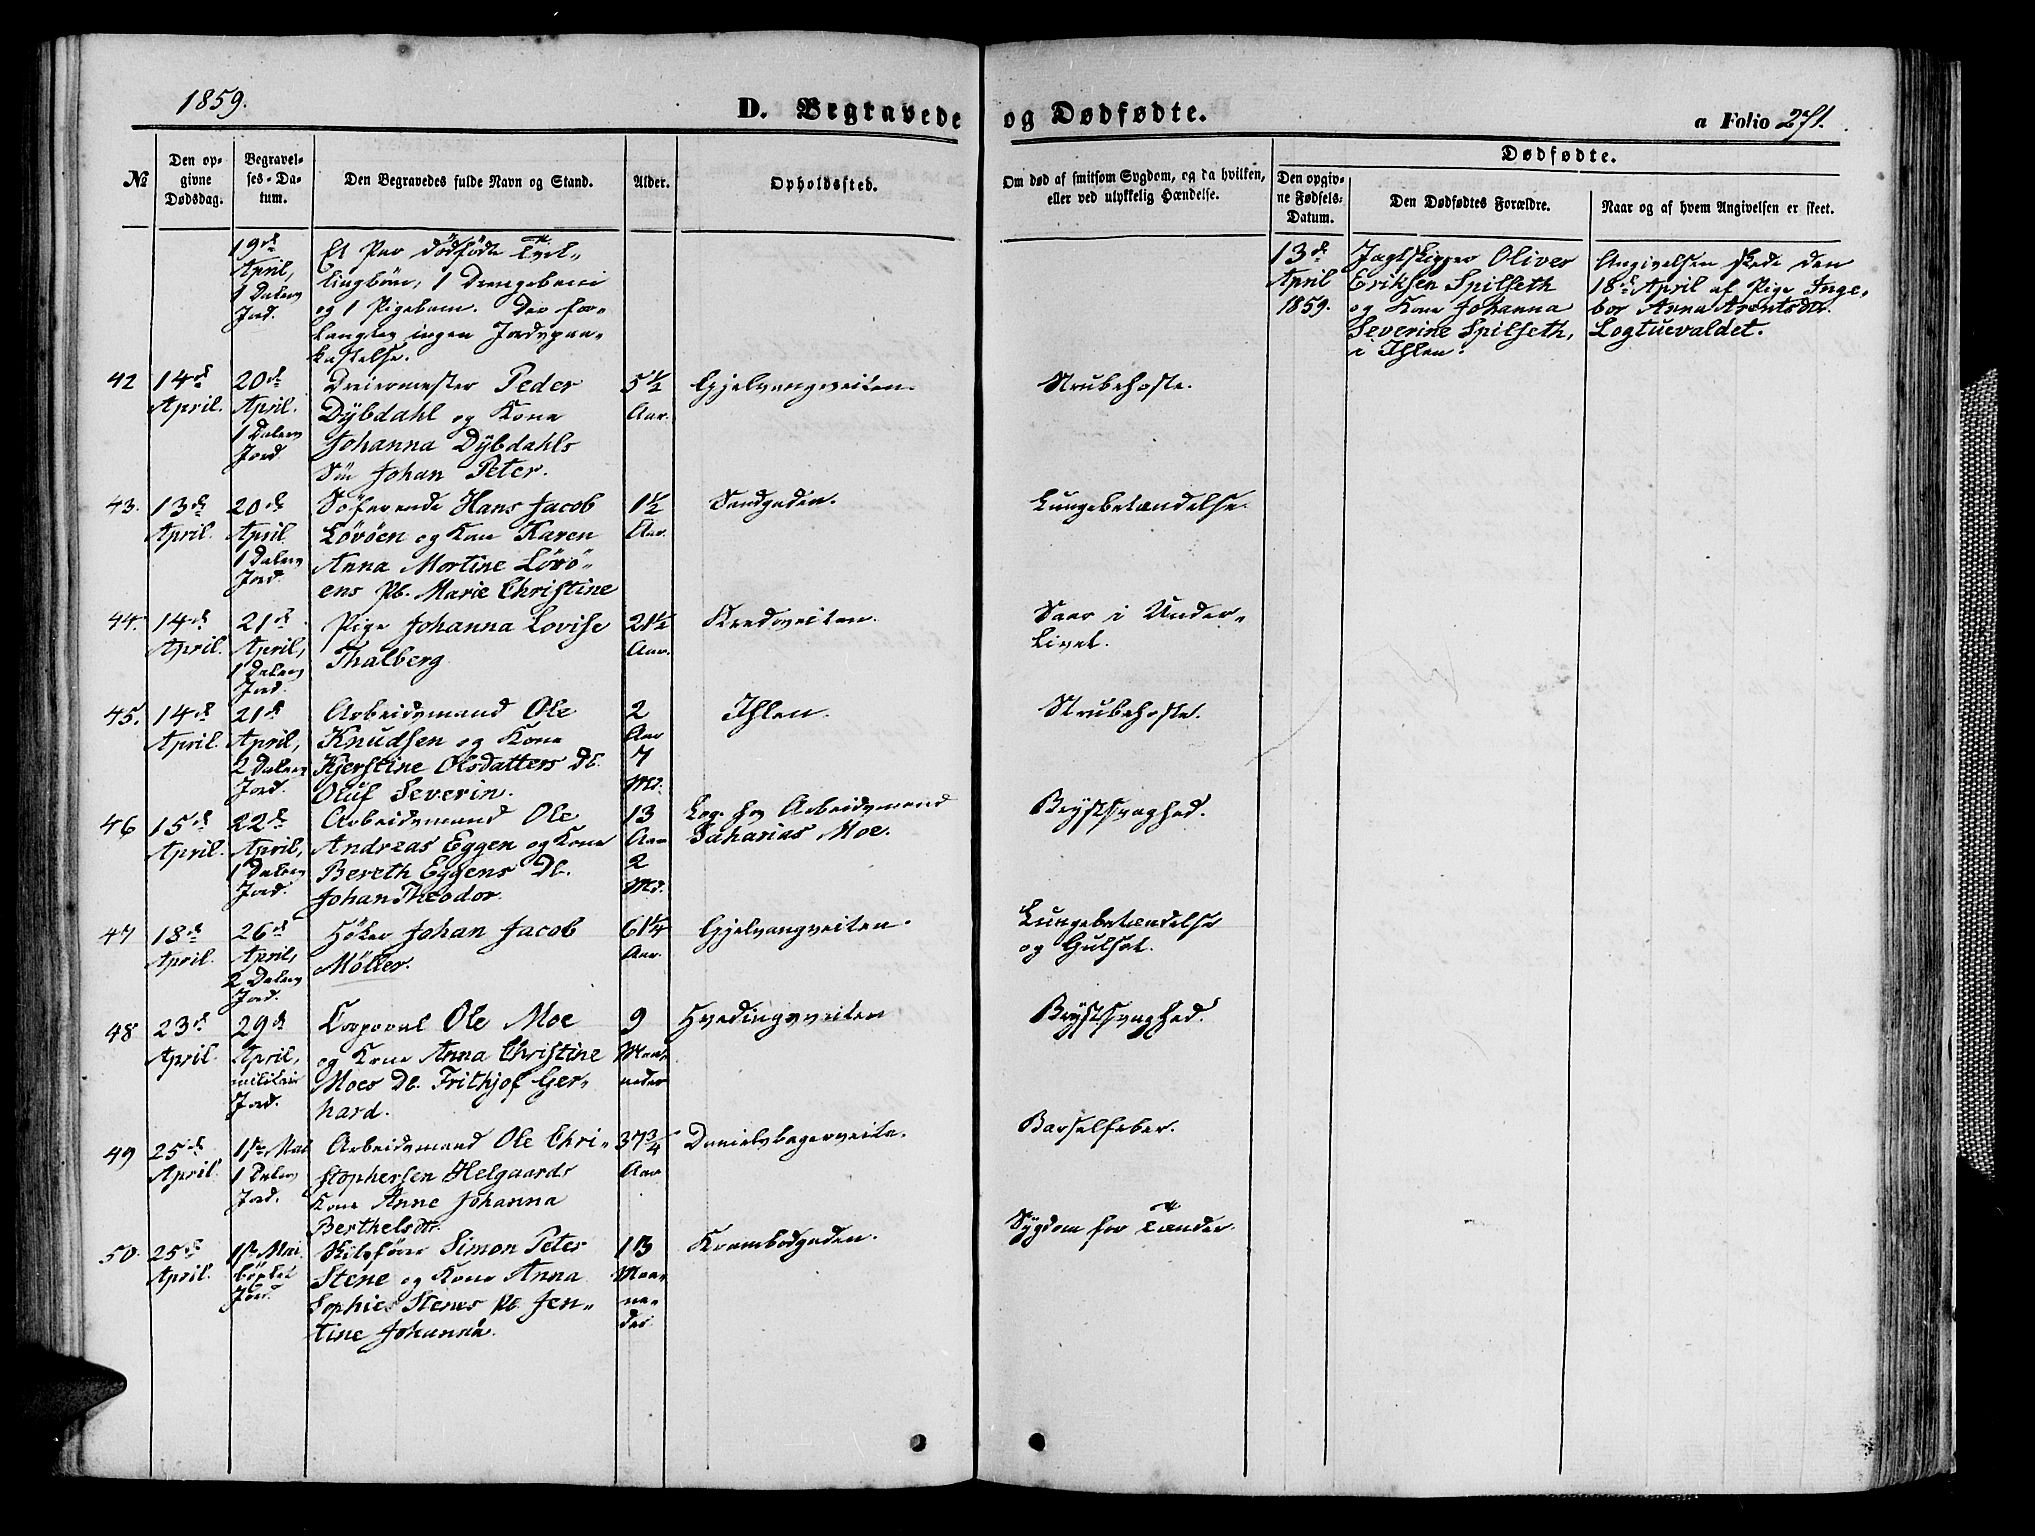 1859.
D. Begravede og Dødfødte.
a Folio 271.
№
Den op-
givne
Dødsdag.
Begravel-
ses-Da-
tum.
Den Begravedes fulde Navn og Stand.
Alder.
Opholdssted.
Om død af smitsom Sygdom, og da hvilken,
eller ved ulykkelig Hændelse.
Dødfødte.
Den opgiv-
ne Fødsels-
Datum.
Den Dødfødtes Forældre.
Naar og af hvem Angivelsen er skeet.
19de
April,
1 Dalers
Jord.
Et Par dödfödte Tvil-
lingbörn, 1 Drengebarn
og 1 Pigebarn. Der for-
langtes ingen Jordspaa-
kastelse.
13de
April
1859.
Jagtskipper Oliver
Eriksen Spilseth
og Kone Johanna
Severine Spilseth,
i Ihlen.
Angivelsen skede den
18de April af Pige Inge-
bor Anna Arentsdtr.
Logtuevaldet.
42
14de
April.
20de
April.
1 Dalers
Jord.
Dreiermester Peder
Dÿbdahl og Kone
Johanna Dÿbdahls
Sön Johan Peter.
5½
Aar.
Gjelvangveiten.
Strubehoste.
43.
13de
April.
20de
April
1 Dalers
Jord.
Söfarende Hans Jacob
Lövöen og Kone Karen
Anna Mortine Lövö-
ens Pb. Marie Christine
1½
Aar.
Sandgaden.
Lungebetændelse.
44.
14de
April.
21de
April,
1 Dalers
Jord.
Pige Johanna Lovise
Thalberg
21½
Aar.
Saar i Under-
livet.
45.
14de
April.
21de
April,
2 Dalers
Jord.
Arbeidsmand Ole
Knudsen og Kone
Kjerstine Olsdatters Db.
Oluf Severin.
2
Aar
7
Md.
Ihlen.
Strubehoste.
46
15de
April.
22de
April,
1 Dalers
Jord.
Arbeidsmand Ole
Andreas Eggen og Kone
Bereth Eggens Db.
Johan Theodor.
13
Aar
2
Md.
Log. hos Arbeidsmand
Zacharias Moe.
Brÿstsvaghed.
47
18de
April.
26de
April,
2 Dalers
Jord.
Höker Johan Jacob
Möller.
61¼
Aar.
Gjelvangveiten.
Lungebetændelse
og Gulsot.
48
23de
April.
29de
April,
militair
Jord.
Corporal Ole Moe
og Kone Anna Christine
Moes Db. Frithjof Ger-
hard.
9
Maa-
neder
Hvedingsveiten
Brÿstsvaghed.
49
25de
April.
1ste Mai
1 Dalers
Jord.
Arbeidsmand Ole Chri-
stophersen Helgaards
Kone Anne Johanna
Berthelsdtr.
37¾
Aar
Danielsbagerveite.
Barselfeber.
50.
25de
April.
1ste Mai
Jord.
Simon Peter
Stene og Kone Anna
Sophies Stenes Pb. Jen-
tine Johanna.
13
Maa-
ne-
der.
Krambodgaden.
Sÿgdom for Tænder.